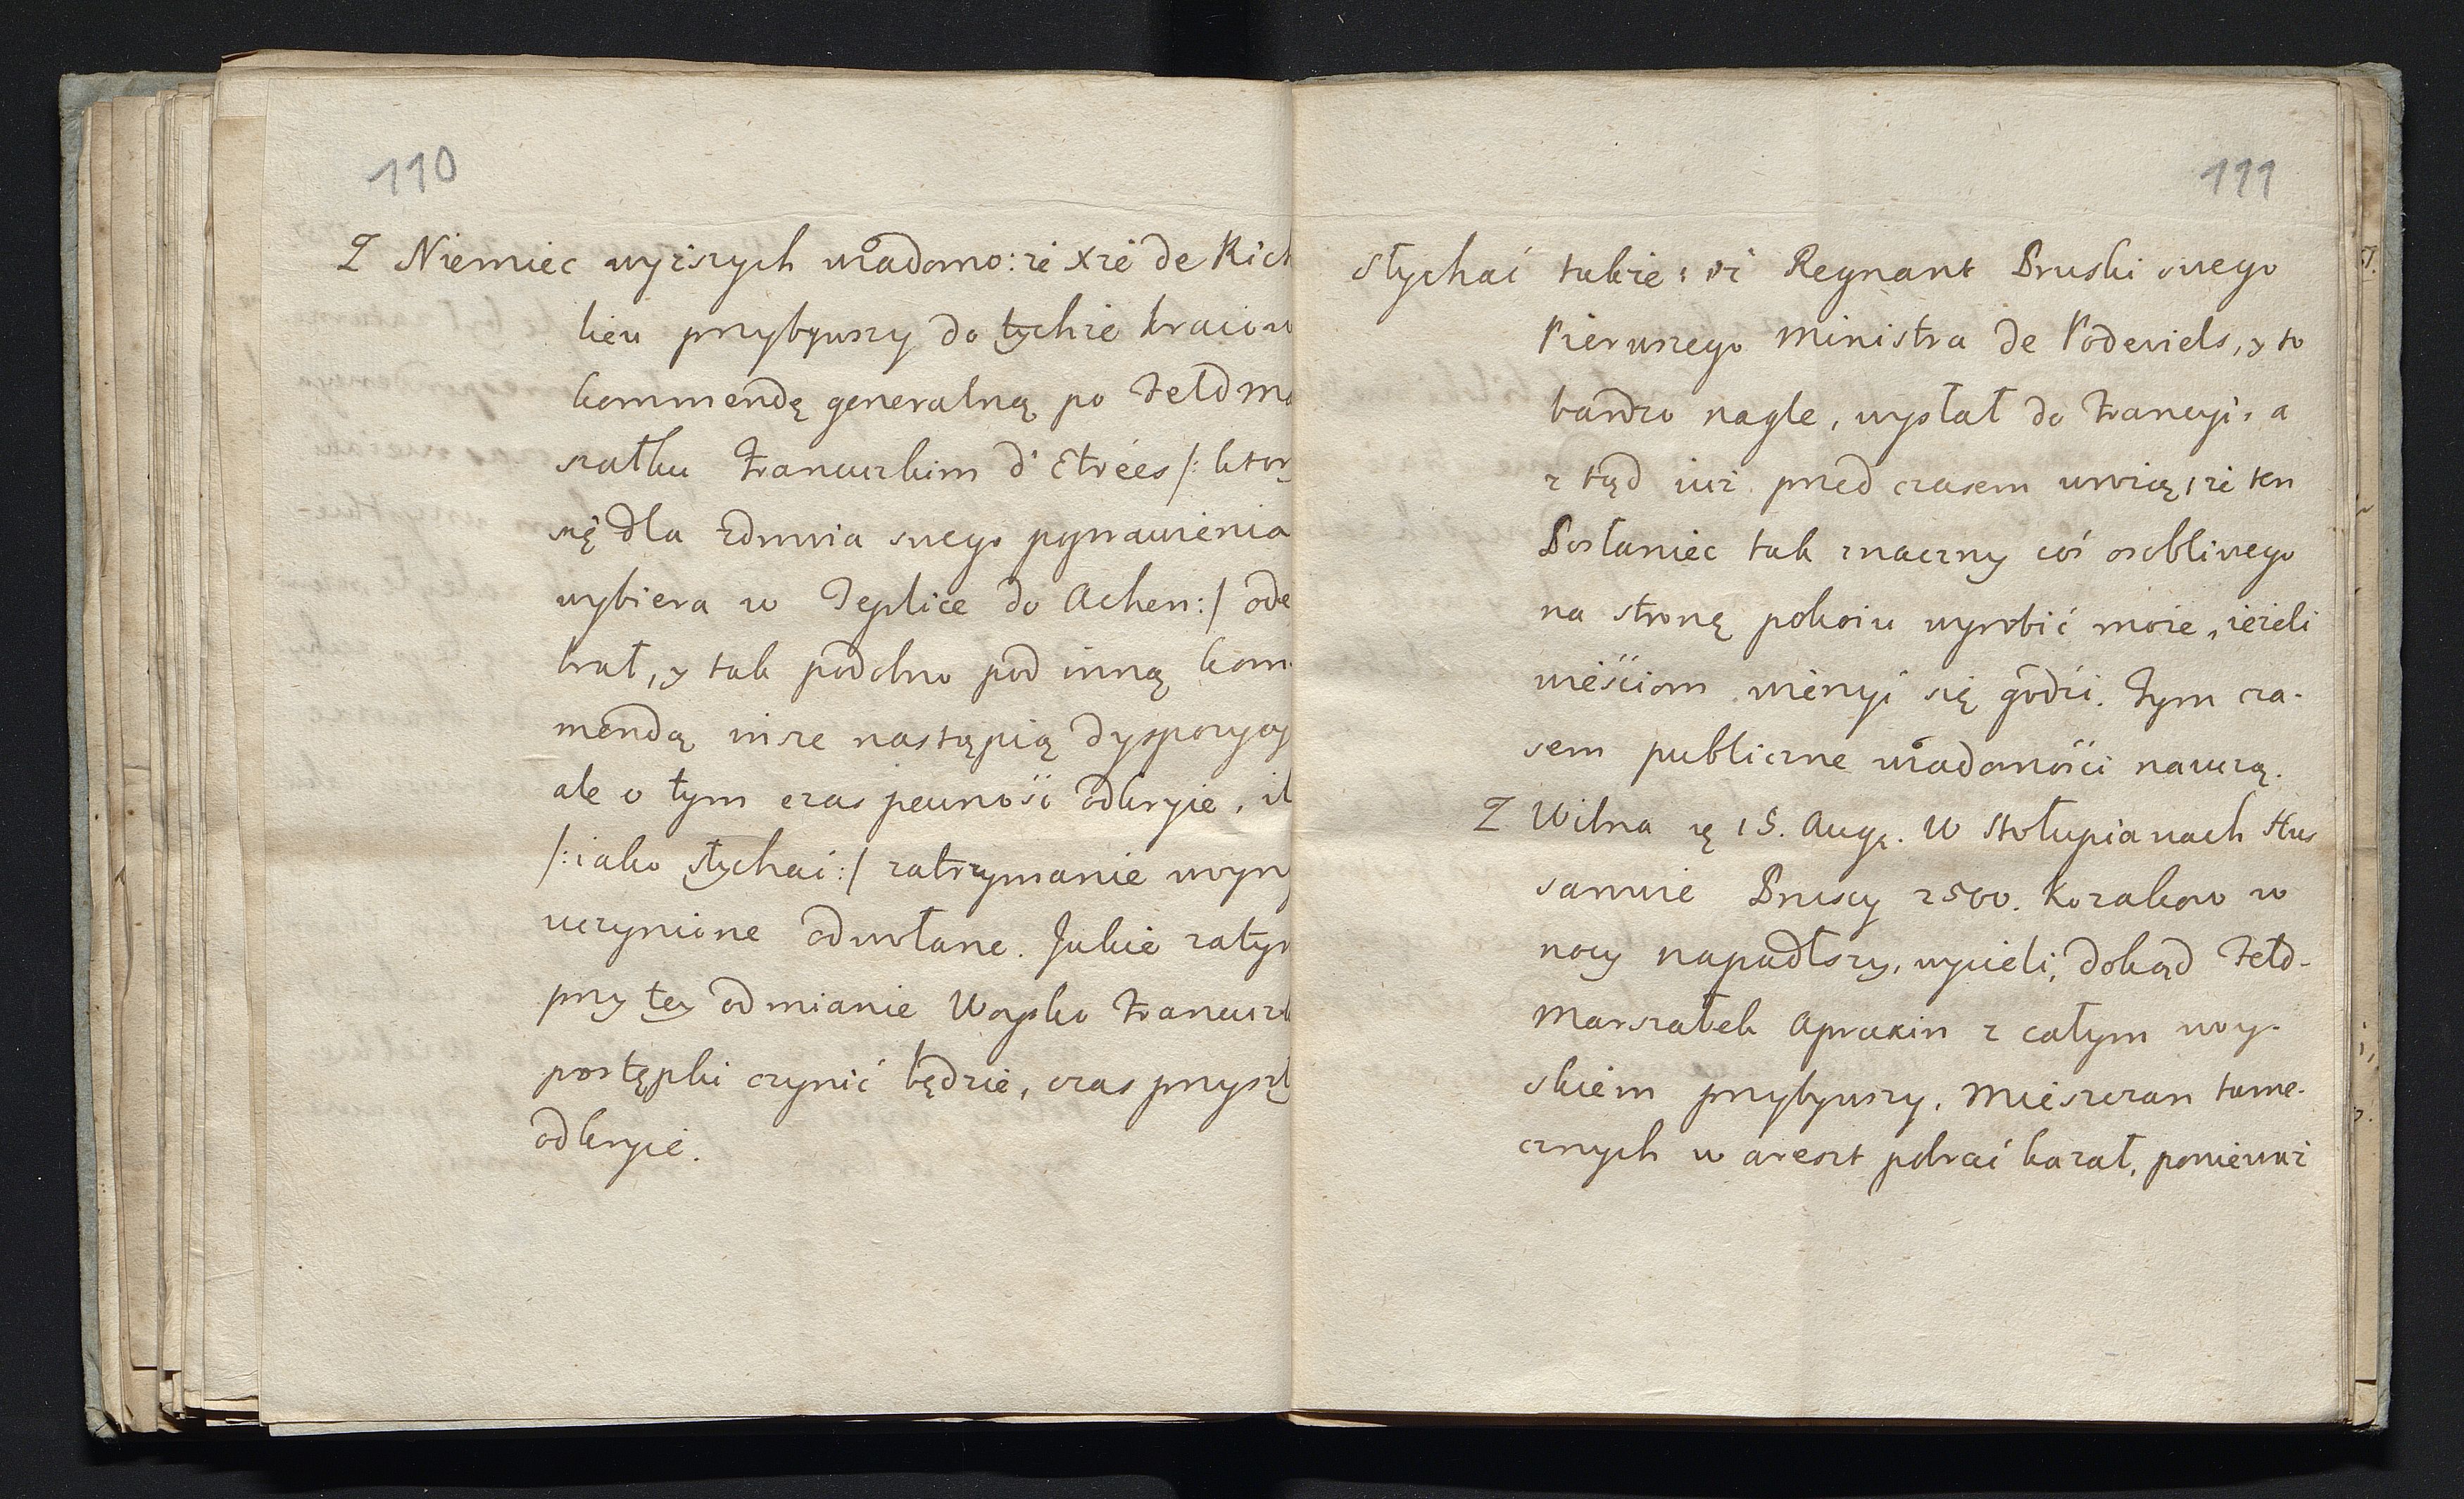 110
Z Niemiec wyższych wiadomo: że Xże de Rich
lieu przybywszy do tychże kraiow
kommendę generalną po Feldma
rszałku Francuzkim d'Etrées /: ktory
się dla zdrowia swego poprawienia
wybiera w Teplice do Achen:/ ode
brał, y tak podobno pod inną kom
mendą insze nastąpią dyspozycy
ale o tym czas pewność odkryie, il
/:iako słychać:/ zatrzymanie woyn
uczynione odwołane. Jakie zatym
przy tey odmianie Woysko Francuzk
postępki czynić będzie, czas przyszł
odkryie.
111
Słychać także: iż Regnant Pruski swego
Pierwszego Ministra de Podeviels, y to
bardzo nagle, wysłał do Francyi, a
z tąd iuż przed czasem wrożą, że ten
Posłaniec tak znaczny coś osobliwego
na stronę pokoiu wyrobić może, ieżeli
wieściom wierzyć się godzi. Tym cza-
sem publiczne wiadomości nauczą.
Z Wilna 15. Aug. W Stołupianach Hus
sarowie Pruscy 2500. Kozakow w
nocy napadłszy, wycieli, dokąd Feld-
Marszałek Apraxin z całym woy-
skiem przybywszy, Mieszczan tame-
cznych w areszt pobrać kazał, ponieważ